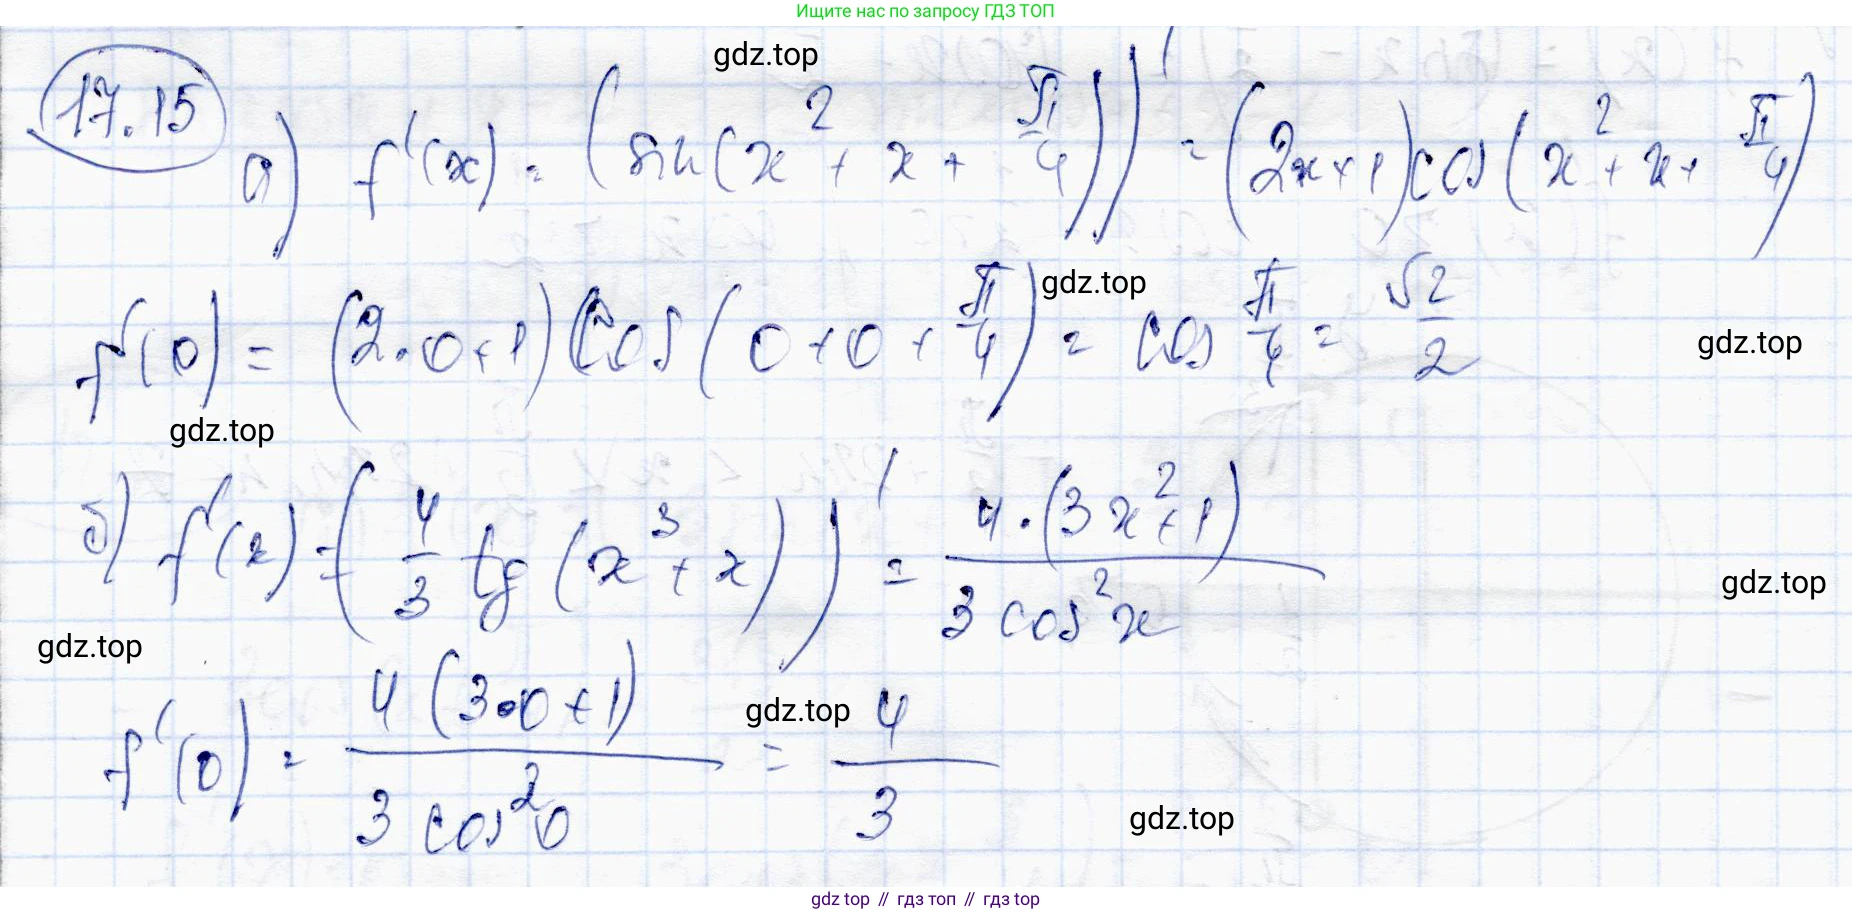 Ищите нас по запросу ГДЗ ТОП
gdz.top
17.15
а) f'(x) = (sin(x² + x + π/4))' = (2x+1)cos(x² + x + π/4)
gdz.top
f'(0) = (2·0+1)cos(0+0+π/4) = cos π/4 = √2/2
gdz.top
gdz.top
б) f'(x) = (4/3 tg(x³ + x))' = 4·(3x²+1)/3cos²x
gdz.top
gdz.top
f'(0) = 4(3·0+1)/3cos²0 = 4/3
gdz.top
gdz.top
gdz.top // гдз топ // гдз top